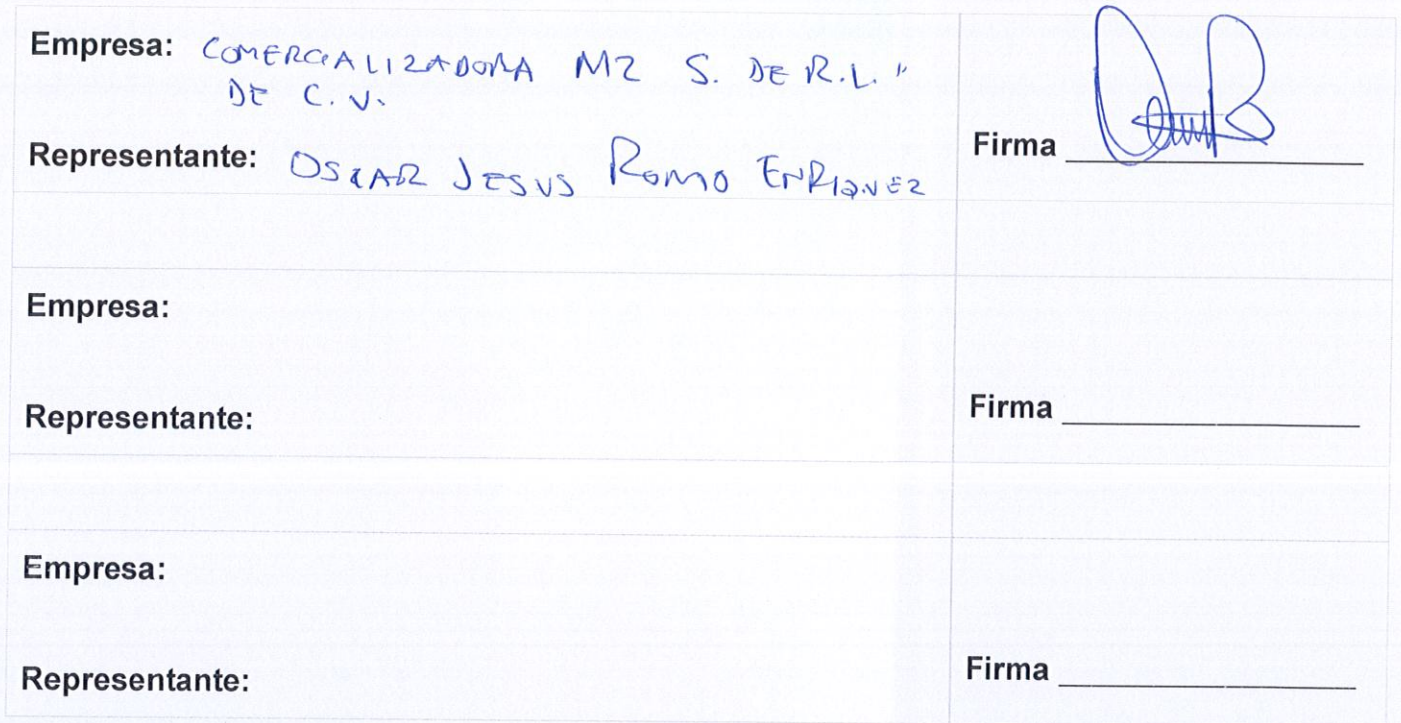 Empresa: COMERCIALIZADORA M2 S. DE R.L."
DE C.V.
Representante: OSCAR JESUS ROMO ENRIQUEZ
Firma
Empresa:
Representante:
Firma
Empresa:
Representante:
Firma